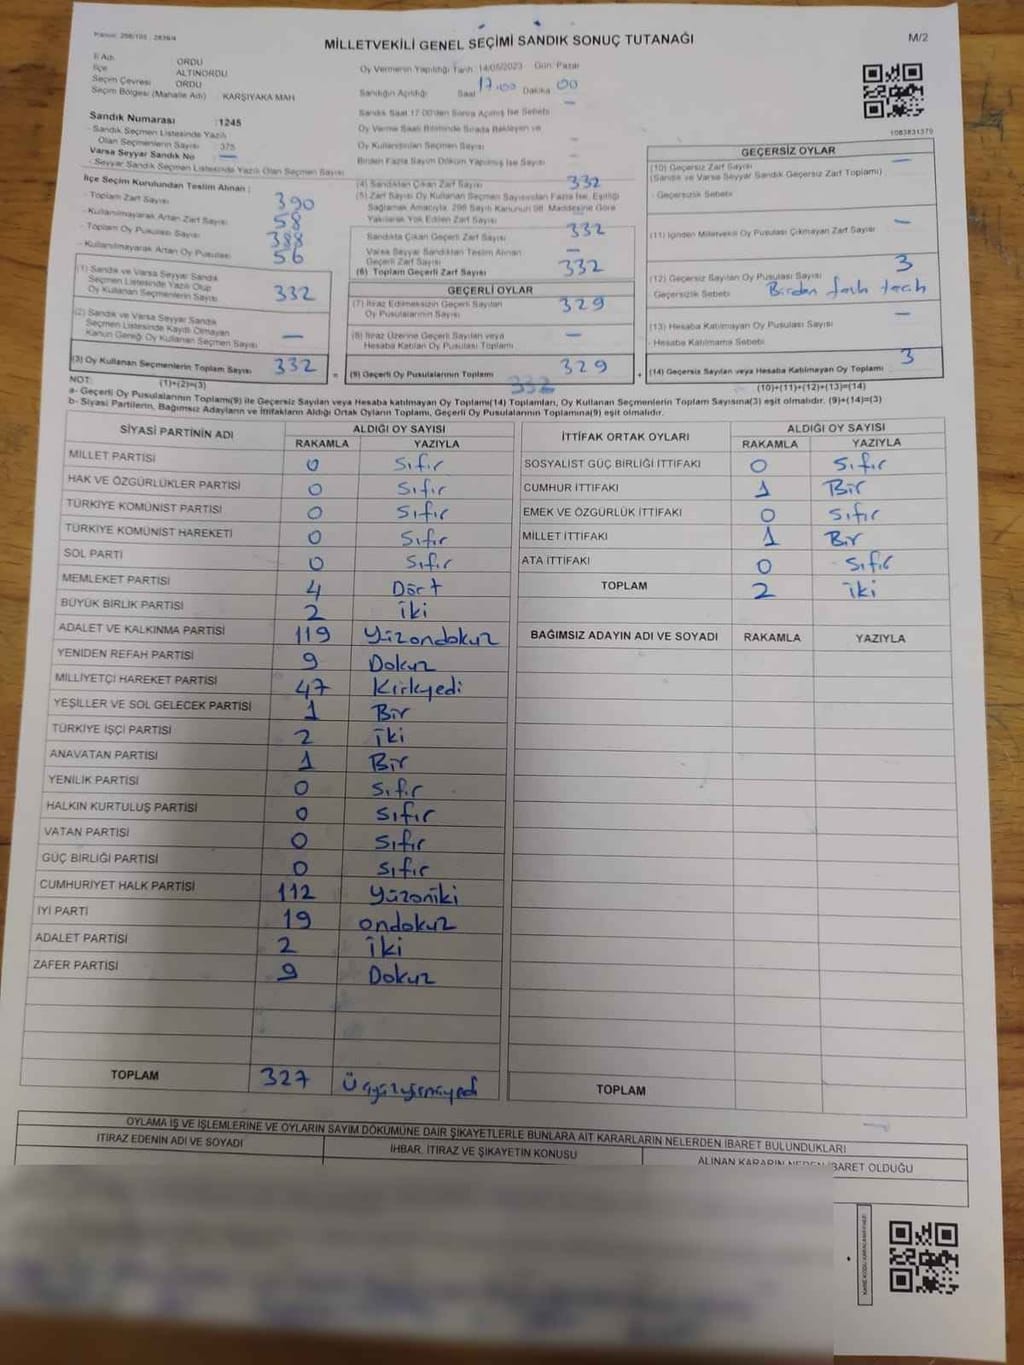 MİLLETVEKİLİ GENEL SEÇİMİ SANDIK SONUÇ TUTANAĞI
M/2
İl Adı ORDU
İlçe ALTINORDU
Seçim Çevresi ORDU
Seçim Bölgesi (Mahalle Adı) : KARŞIYAKA MAH
Oy Vermenin Yapıldığı Tarih: 14/05/2023 Gün: Pazar
Sandığın Açıldığı Saat 17.00 Dakika 00
Sandık Numarası : 1245
- Sandık Seçmen Listesinde Yazılı
Olan Seçmenlerin Sayısı : 375
Varsa Seyyar Sandık No —
- Seyyar Sandık Seçmen Listesinde Yazılı Olan Seçmen Sayısı
Sandık Saat 17.00'den Sonra Açılmış İse Sebebi —
Oy Verme Saati Bitiminde Sırada Bekleyen ve
Oy Kullandırılan Seçmen Sayısı —
Birden Fazla Sayım Döküm Yapılmış İse Sayısı —
1083831379
İlçe Seçim Kurulundan Teslim Alınan :
- Toplam Zarf Sayısı 390
- Kullanılmayarak Artan Zarf Sayısı 58
- Toplam Oy Pusulası Sayısı 388
- Kullanılmayarak Artan Oy Pusulası 56
(1) Sandık ve Varsa Seyyar Sandık
Seçmen Listesinde Yazılı Olup
Oy Kullanan Seçmenlerin Sayısı 332
(2) Sandık ve Varsa Seyyar Sandık
Seçmen Listesinde Kayıtlı Olmayan
Kanun Gereği Oy Kullanan Seçmen Sayısı —
(3) Oy Kullanan Seçmenlerin Toplam Sayısı 332
(4) Sandıktan Çıkan Zarf Sayısı 332
(5) Zarf Sayısı Oy Kullanan Seçmen Sayısından Fazla İse, Eşitliği
Sağlamak Amacıyla, 298 Sayılı Kanunun 98. Maddesine Göre
Yakılarak Yok Edilen Zarf Sayısı
Sandıkta Çıkan Geçerli Zarf Sayısı 332
Varsa Seyyar Sandıktan Teslim Alınan
Geçerli Zarf Sayısı —
(6) Toplam Geçerli Zarf Sayısı 332
GEÇERLİ OYLAR
(7) İtiraz Edilmeksizin Geçerli Sayılan
Oy Pusulalarının Sayısı 329
(8) İtiraz Üzerine Geçerli Sayılan veya
Hesaba Katılan Oy Pusulası Toplamı —
= (9) Geçerli Oy Pusulalarının Toplamı 329
332
GEÇERSİZ OYLAR
(10) Geçersiz Zarf Sayısı —
(Sandık ve Varsa Seyyar Sandık Geçersiz Zarf Toplamı)
- Geçersizlik Sebebi
(11) İçinden Milletvekili Oy Pusulası Çıkmayan Zarf Sayısı —
(12) Geçersiz Sayılan Oy Pusulası Sayısı 3
Geçersizlik Sebebi Birden fazla tercih
(13) Hesaba Katılmayan Oy Pusulası Sayısı —
- Hesaba Katılmama Sebebi
+ (14) Geçersiz Sayılan veya Hesaba Katılmayan Oy Toplamı 3
NOT: (1)+(2)=(3)
(10)+(11)+(12)+(13)=(14)
a- Geçerli Oy Pusulalarının Toplamı(9) ile Geçersiz Sayılan veya Hesaba katılmayan Oy Toplamı(14) Toplamları, Oy Kullanan Seçmenlerin Toplam Sayısına(3) eşit olmalıdır. (9)+(14)=(3)
b- Siyasi Partilerin, Bağımsız Adayların ve İttifakların Aldığı Ortak Oyların Toplamı, Geçerli Oy Pusulalarının Toplamına(9) eşit olmalıdır.
SİYASİ PARTİNİN ADI ALDIĞI OY SAYISI
RAKAMLA YAZIYLA
MİLLET PARTİSİ 0 Sıfır
HAK VE ÖZGÜRLÜKLER PARTİSİ 0 Sıfır
TÜRKİYE KOMÜNİST PARTİSİ 0 Sıfır
TÜRKİYE KOMÜNİST HAREKETİ 0 Sıfır
SOL PARTİ 0 Sıfır
MEMLEKET PARTİSİ 4 Dört
BÜYÜK BİRLİK PARTİSİ 2 iki
ADALET VE KALKINMA PARTİSİ 119 Yüzondokuz
YENİDEN REFAH PARTİSİ 9 Dokuz
MİLLİYETÇİ HAREKET PARTİSİ 47 Kırkyedi
YEŞİLLER VE SOL GELECEK PARTİSİ 1 Bir
TÜRKİYE İŞÇİ PARTİSİ 2 iki
ANAVATAN PARTİSİ 1 Bir
YENİLİK PARTİSİ 0 Sıfır
HALKIN KURTULUŞ PARTİSİ 0 Sıfır
VATAN PARTİSİ 0 Sıfır
GÜÇ BİRLİĞİ PARTİSİ 0 Sıfır
CUMHURİYET HALK PARTİSİ 112 Yüzoniki
İYİ PARTİ 19 ondokuz
ADALET PARTİSİ 2 iki
ZAFER PARTİSİ 9 Dokuz
TOPLAM 327 Üçyüzyirmiyedi
İTTİFAK ORTAK OYLARI ALDIĞI OY SAYISI
RAKAMLA YAZIYLA
SOSYALİST GÜÇ BİRLİĞİ İTTİFAKI 0 Sıfır
CUMHUR İTTİFAKI 1 Bir
EMEK VE ÖZGÜRLÜK İTTİFAKI 0 Sıfır
MİLLET İTTİFAKI 1 Bir
ATA İTTİFAKI 0 Sıfır
TOPLAM 2 iki
BAĞIMSIZ ADAYIN ADI VE SOYADI RAKAMLA YAZIYLA
TOPLAM
OYLAMA İŞ VE İŞLEMLERİNE VE OYLARIN SAYIM DÖKÜMÜNE DAİR ŞİKAYETLERLE BUNLARA AİT KARARLARIN NELERDEN İBARET BULUNDUKLARI
İTİRAZ EDENİN ADI VE SOYADI İHBAR, İTİRAZ VE ŞİKAYETİN KONUSU ALINAN KARARIN NEDEN İBARET OLDUĞU